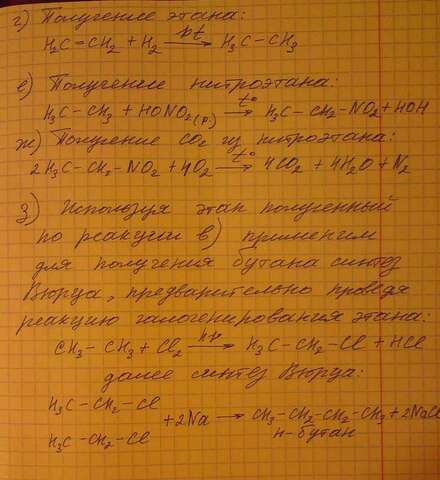 г) Получение этана:
H₂C=CH₂ + H₂ pt→ H₃C–CH₃
е) Получение нитроэтана:
H₃C–CH₃ + HONO₂(р.) t°→ H₃C–CH₂–NO₂ + HOH
ж) Получение CO₂ из нитроэтана:
2H₃C–CH₂–NO₂ + 4O₂ t°→ 4CO₂ + 4H₂O + N₂
з) Используя этан полученный
по реакции в) применим
для получения бутана синтез
Вюрца, предварительно проведя
реакцию галогенирования этана:
CH₃–CH₃ + Cl₂ hν→ H₃C–CH₂–Cl + HCl
далее синтез Вюрца:
H₃C–CH₂–Cl
+2Na → CH₃–CH₂–CH₂–CH₃ + 2NaCl
H₃C–CH₂–Cl
н-бутан